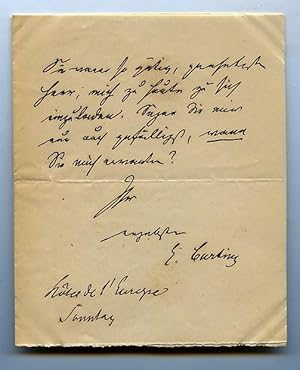 Sie waren so gütig, geehrtester
Herr, mich zu heute zu sich
einzuladen. Sagen Sie mir
nur auch gefälligst, wann
Sie mich erwarten?
Ihr
ergebenster
E. Curtius
Hôtel de l'Europe
Sonntag